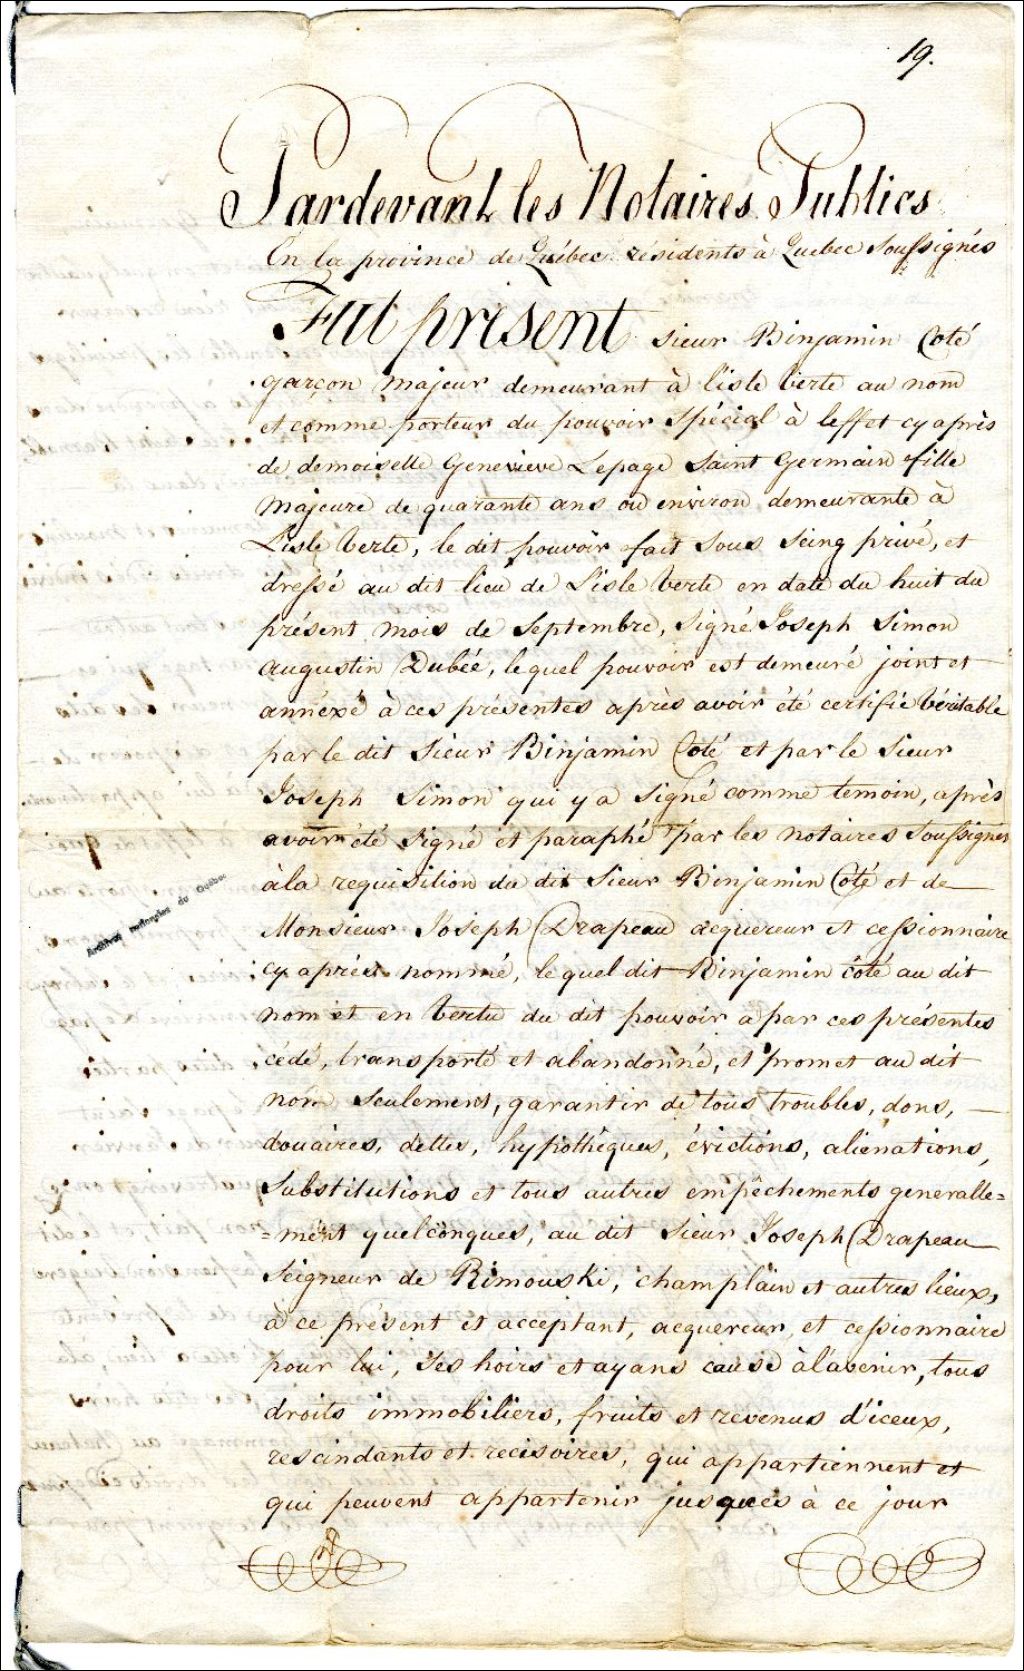 19.
Pardevant les Notaires Publics
En la province de Québec résidents à Quebec Soussignés
Fut présent sieur Binjamin Coté
garçon majeur demeurant à l'isle Verte au nom
et comme porteur du pouvoir Spécial à leffet cy après
de demoiselle Genevieve Lepage Saint Germain fille
Majeure de quarante ans ou environ demeurante à
L'isle Verte, le dit pouvoir fait Sous Seing privé, et
dressé au dit lieu de L'isle Verte en date du huit du
présent Mois de Septembre, Signé Joseph Simon
augustin Dubée, le quel pouvoir est demeuré joint et
annéxé à ces présentes après avoir été certifié Véritable
par le dit Sieur Binjamin Coté et par le Sieur
Joseph Simon qui y a Signé comme temoin, après
avoir été Signé et paraphé par les notaires Soussignés
à la requisition du dit Sieur Binjamin Coté et de
Monsieur Joseph Drapeau acquereur et cessionnaire
cy après nommé, le quel dit Binjamin coté au dit
nom et en Vertu du dit pouvoir a par ces présentes
cédé, transporté et abandonné, et promet au dit
nom Seulement, garantir de tous troubles, dons,
douaires, dettes, hypothéques, évictions, aliénations,
Substitutions et tous autres empêchements generalle=
=ment quelconques, au dit Sieur Joseph Drapeau
Seigneur de Rimouski, champlain et autres lieux,
à ce présent et acceptant, acquereur, et cessionnaire
pour lui, Ses hoirs et ayans cause à l'avenir, tous
droits immobiliers, fruits et revenus d'iceux,
rescindants et recisoires, qui appartiennent et
qui peuvent appartenir jusques à ce jour
Archives nationales du Québec